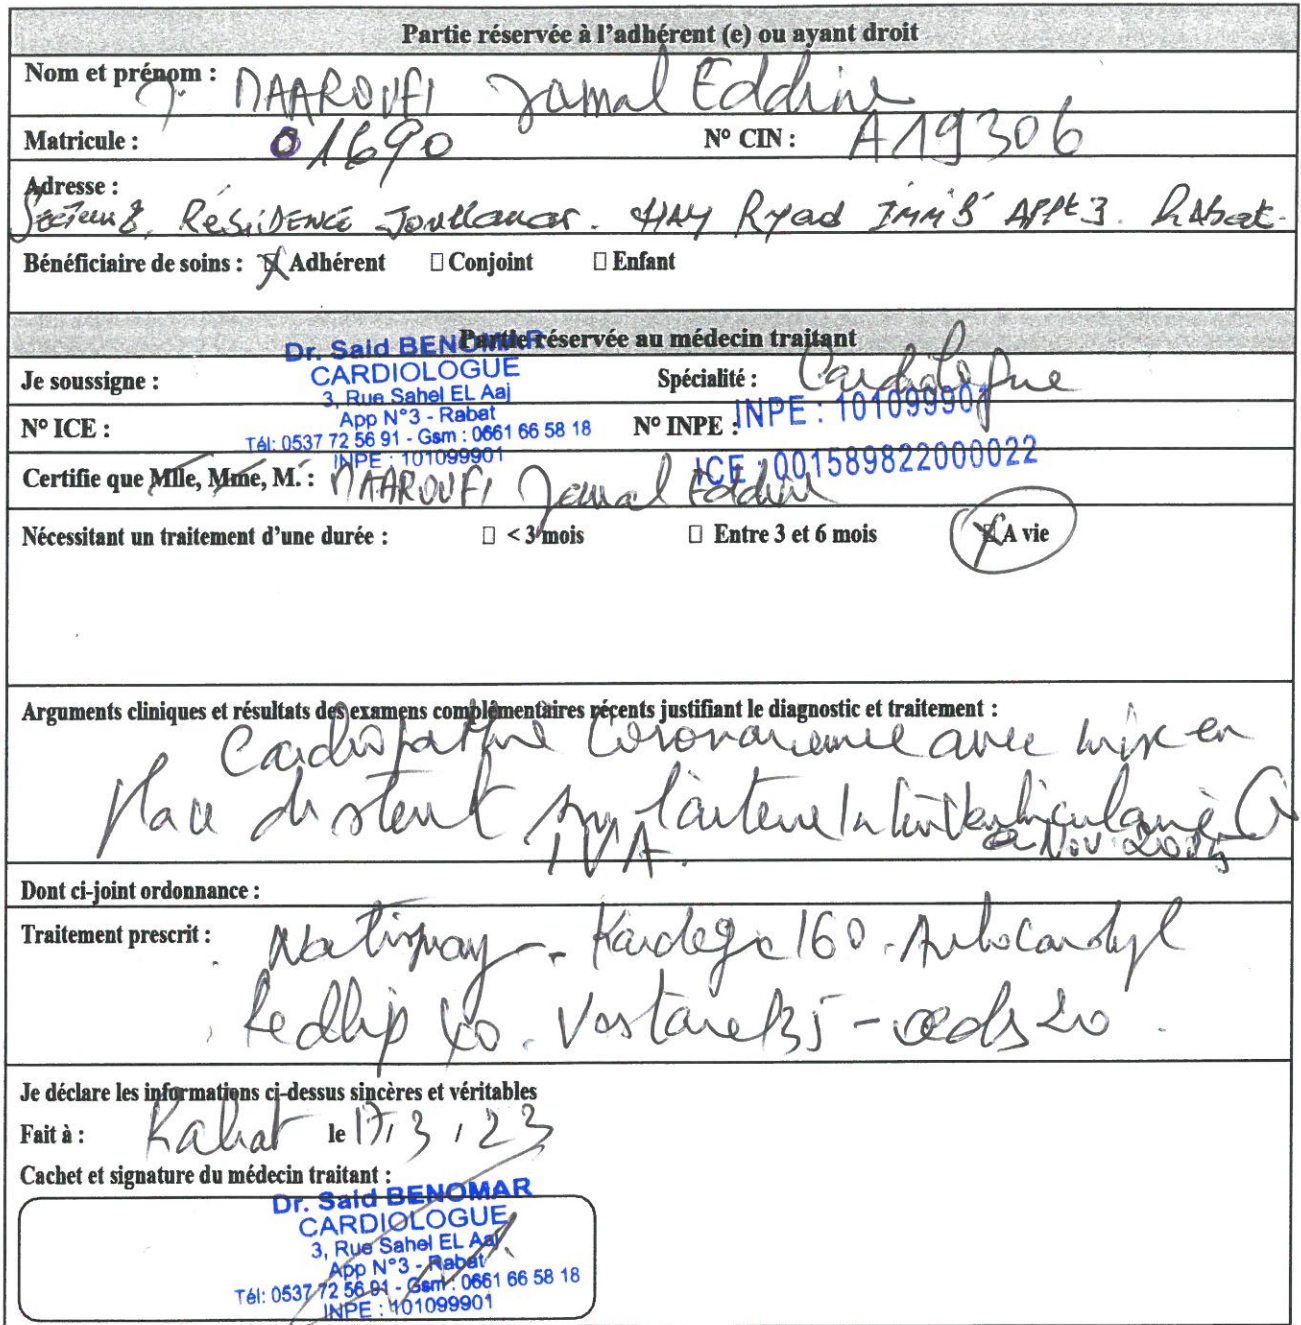 Partie réservée à l'adhérent (e) ou ayant droit
Nom et prénom : MAAROUFI Jamal Eddine
Matricule : 01690 N° CIN : A19306
Adresse :
Secteur 8, RéSiDENCE Joullanar. HAY Ryad IMM 5 APPt 3. Rabat.
Bénéficiaire de soins : Adhérent □ Conjoint □ Enfant
Partie réservée au médecin traitant
Dr. Said BENOMAR
CARDIOLOGUE
3, Rue Sahel EL Aaj
App N°3 - Rabat
Tél: 0537 72 56 91 - Gsm : 0661 66 58 18
INPE : 101099901
Je soussigne : Spécialité : Cardiologue
N° ICE : N° INPE : INPE : 101099901
ICE : 001589822000022
Certifie que Mlle, Mme, M. : MAAROUFI Jamal Eddine
Nécessitant un traitement d'une durée : □ < 3 mois □ Entre 3 et 6 mois A vie
Arguments cliniques et résultats des examens complémentaires récents justifiant le diagnostic et traitement :
Cardiopathie Coronarienne avec mise en
place de stent sur l'artère Interventriculaire
IVA. Nov
Dont ci-joint ordonnance :
Traitement prescrit : Natispray - Kardegic 160 -
Redlip 40. Vastarel 35 - oedes 20.
Je déclare les informations ci-dessus sincères et véritables
Fait à : Rabat le 17/3/23
Cachet et signature du médecin traitant :
Dr. Said BENOMAR
CARDIOLOGUE
3, Rue Sahel EL Aaj
App N°3 - Rabat
Tél: 0537 72 56 91 - Gsm : 0661 66 58 18
INPE : 101099901